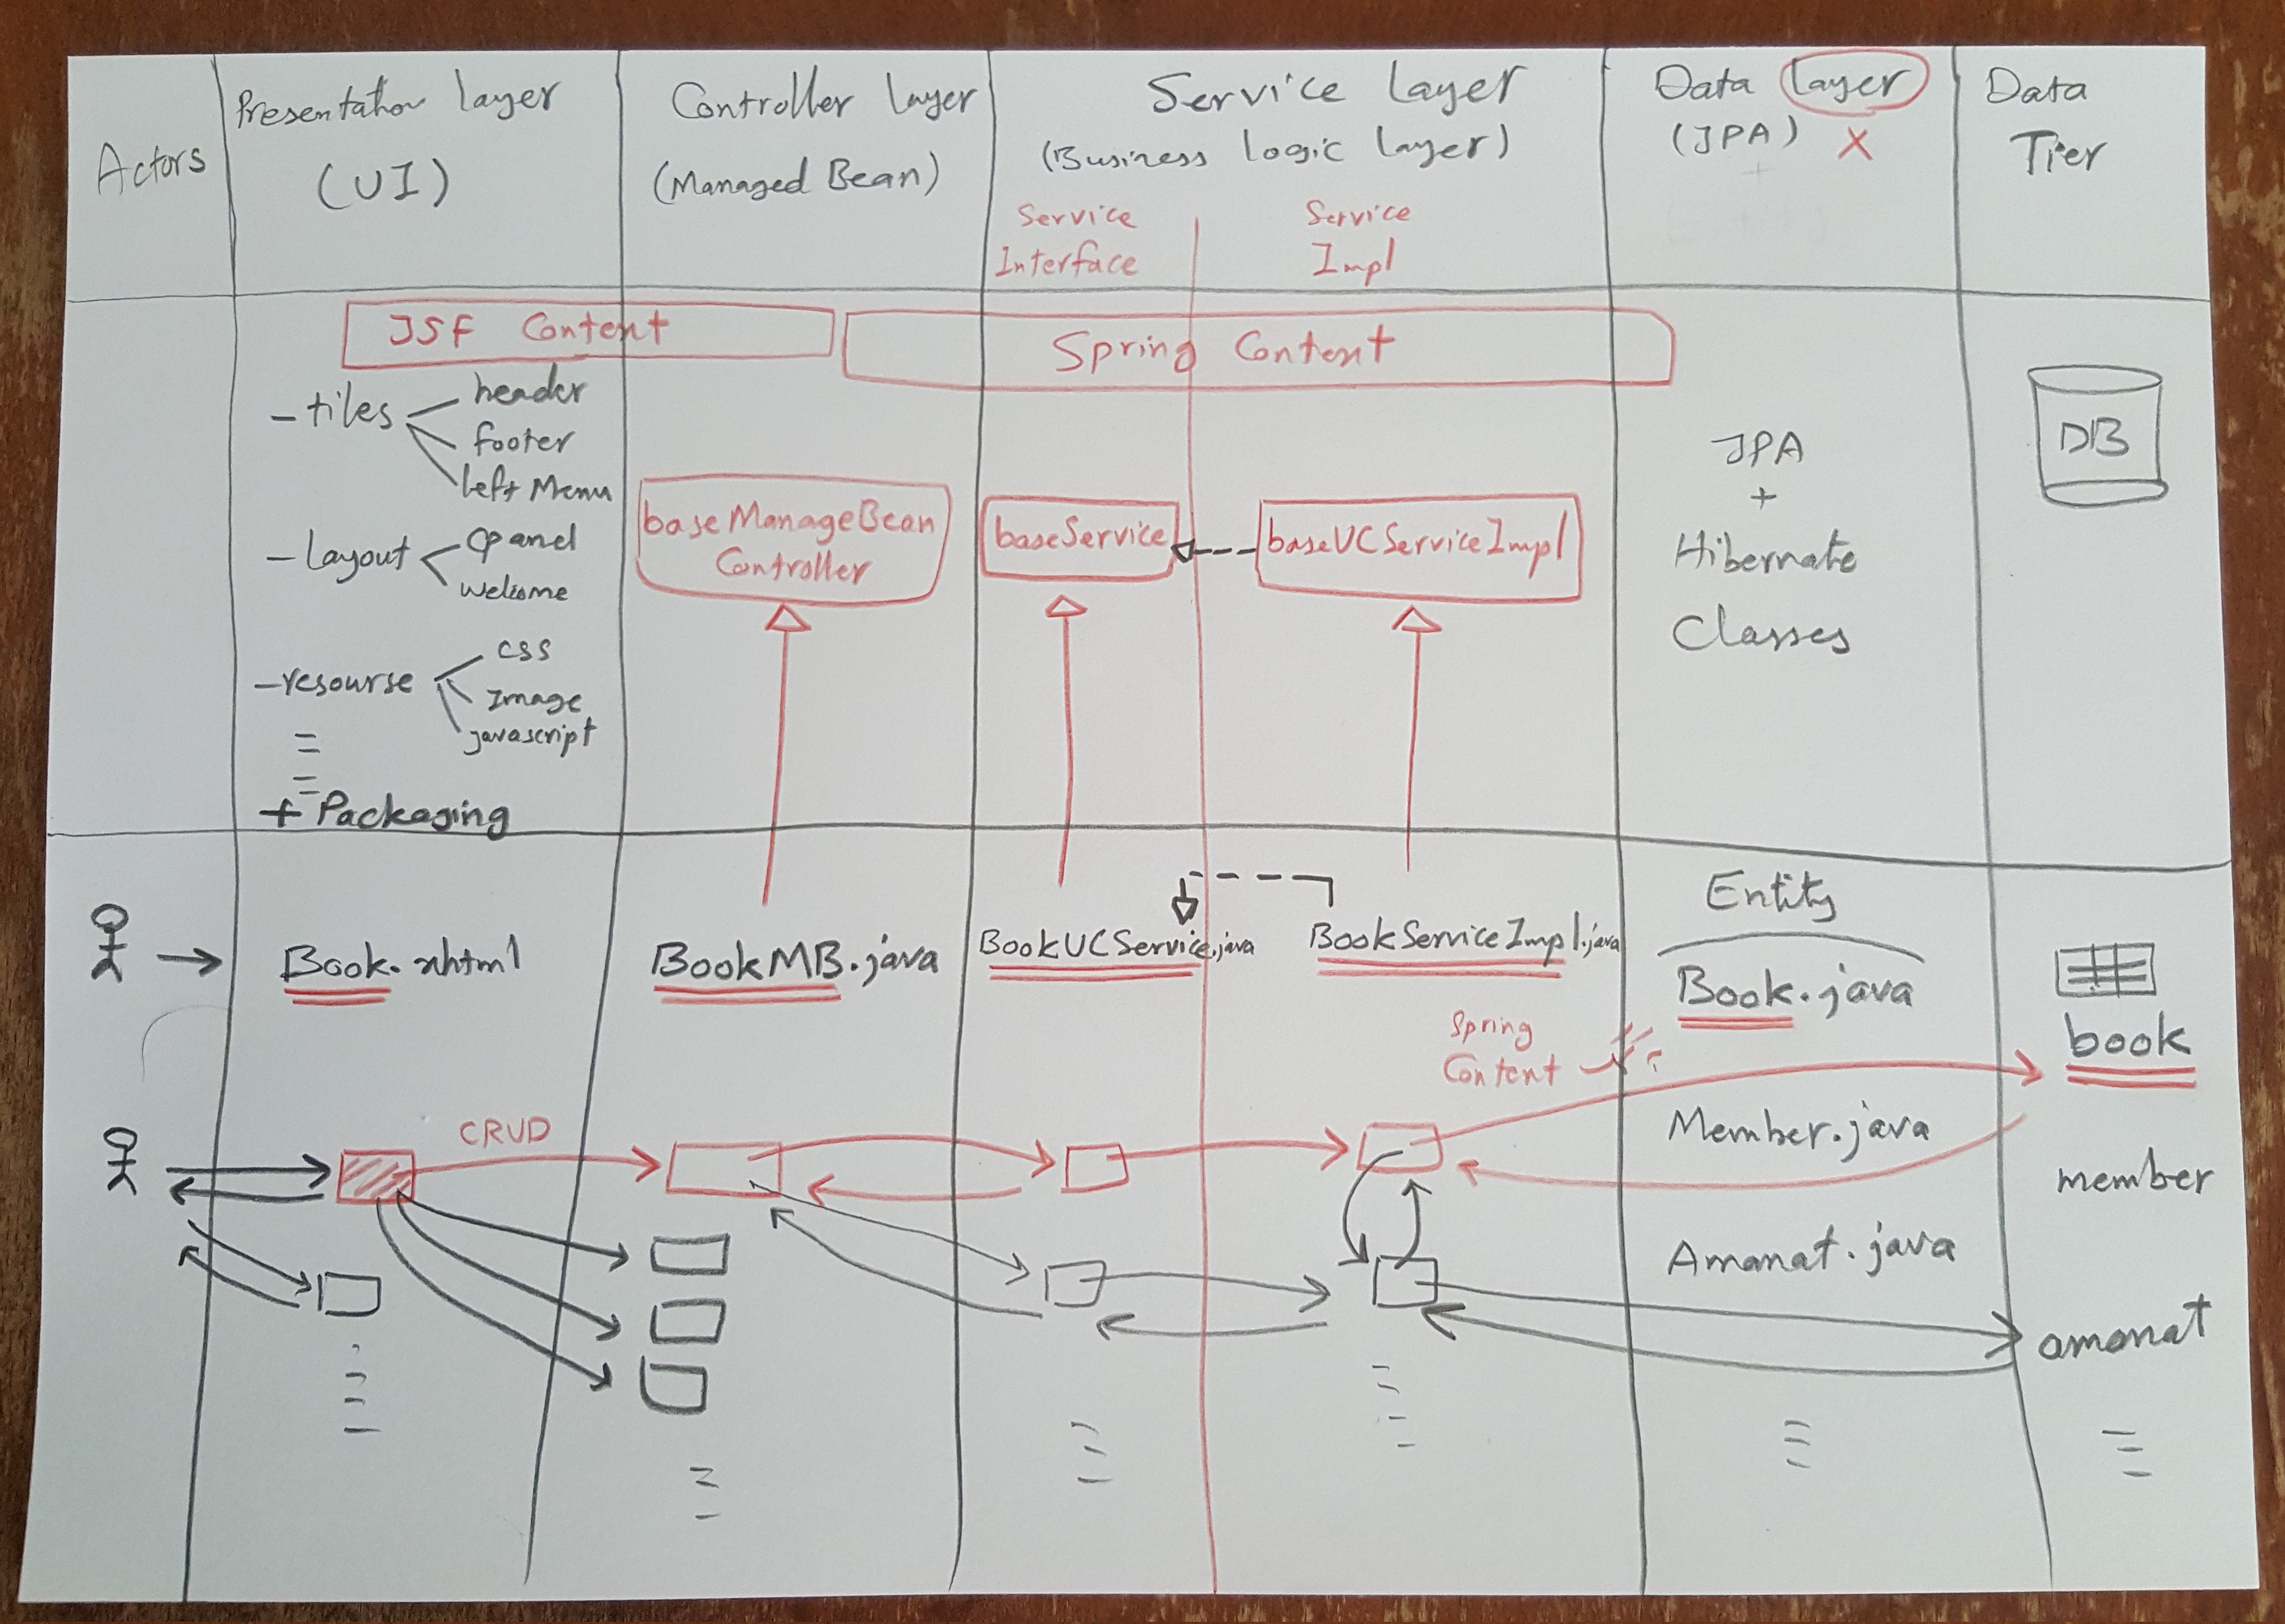 Actors
Presentation layer
(UI)
Controller Layer
(Managed Bean)
Service Layer
(Business logic Layer)
Service
Interface
Service
Impl
Data Layer
(JPA) X
Data
Tier
JSF Content
Spring Content
- tiles
header
footer
left Menu
- layout
cpanel
welcome
- resourse
css
Image
javascript
+ Packaging
baseManageBean
Controller
baseService
baseUCServiceImpl
JPA
+
Hibernate
Classes
DB
Book.xhtml
BookMB.java
BookUCService.java
BookServiceImpl.java
Entity
Book.java
book
Spring
Content
CRUD
Member.java
member
Amanat.java
amanat